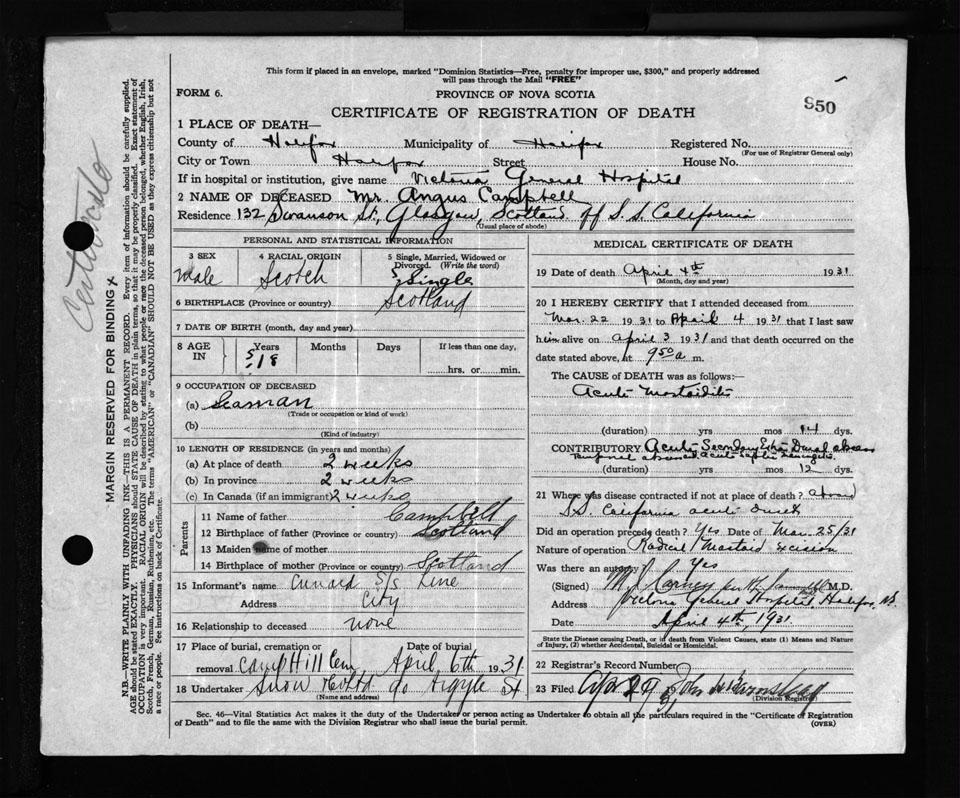 This form if placed in an envelope, marked "Dominion Statistics—Free, penalty for improper use, $300," and properly addressed
will pass through the Mail "FREE"
FORM 6.
PROVINCE OF NOVA SCOTIA
950
CERTIFICATE OF REGISTRATION OF DEATH
1 PLACE OF DEATH—
County of Halifax Municipality of Halifax Registered No.
(For use of Registrar General only)
City or Town Halifax Street House No.
If in hospital or institution, give name Victoria General Hospital
2 NAME OF DECEASED Mr. Angus Campbell
Residence 132 Swanson St, Glasgow, Scotland off S.S. California
(Usual place of abode)
PERSONAL AND STATISTICAL INFORMATION
3 SEX
Male
4 RACIAL ORIGIN
Scotch
5 Single, Married, Widowed or
Divorced. (Write the word)
Single
6 BIRTHPLACE (Province or country) Scotland
7 DATE OF BIRTH (month, day and year)
8 AGE IN
Years Months Days If less than one day,
18
hrs. or min.
9 OCCUPATION OF DECEASED
(a) Seaman
(Trade or occupation or kind of work)
(b)
(Kind of industry)
10 LENGTH OF RESIDENCE (in years and months)
(a) At place of death 2 weeks
(b) In province 2 weeks
(c) In Canada (if an immigrant) 2 weeks
Parents
11 Name of father Campbell
12 Birthplace of father (Province or country) Scotland
13 Maiden name of mother
14 Birthplace of mother (Province or country) Scotland
15 Informant's name Cunard S/S Line
Address City
16 Relationship to deceased none
17 Place of burial, cremation or removal Camp Hill Cem
Date of burial April 6th 1931
18 Undertaker Snow & Co Ltd 90 Argyle St
(Name and address)
MEDICAL CERTIFICATE OF DEATH
19 Date of death April 4th 1931
(Month, day and year)
20 I HEREBY CERTIFY that I attended deceased from
Mar. 22 1931 to April 4 1931 that I last saw
him alive on April 3 1931 and that death occurred on the
date stated above, at 9 50 a m.
The CAUSE of DEATH was as follows:—
Acute Mastoiditis
(duration) yrs mos 14 dys.
CONTRIBUTORY Acute Secondary Extra Dural abscess
Acute Septic Meningitis
(duration) yrs mos 12 dys.
21 Where was disease contracted if not at place of death? aboard
S.S. California
Did an operation precede death? Yes Date of Mar. 25/31
Nature of operation Radical Mastoid excision
Was there an autopsy Yes
(Signed) M.D.
Address Victoria General Hospital, Halifax, N.S.
Date April 4th, 1931
State the Disease causing Death, or if death from Violent Causes, state (1) Means and Nature
of Injury, (2) whether Accidental, Suicidal or Homicidal.
22 Registrar's Record Number
23 Filed Apr 29 31 John
(Division Registrar)
Sec. 46—Vital Statistics Act makes it the duty of the Undertaker or person acting as Undertaker to obtain all the particulars required in the "Certificate of Registration
of Death" and to file the same with the Division Registrar who shall issue the burial permit.
(OVER)
MARGIN RESERVED FOR BINDING
N.B.—WRITE PLAINLY WITH UNFADING INK—THIS IS A PERMANENT RECORD. Every item of information should be carefully supplied.
AGE should be stated EXACTLY. PHYSICIANS should STATE CAUSE OF DEATH in plain terms, so that it may be properly classified. Exact statement of
OCCUPATION is very important. RACIAL ORIGIN will be described by stating to what people or race the deceased person belonged, whether English, Irish,
Scotch, French, German, Russian, Ruthenian, etc. The terms "AMERICAN" or "CANADIAN" SHOULD NOT BE USED as they express citizenship but not
a race or people. See instructions on back of Certificate.